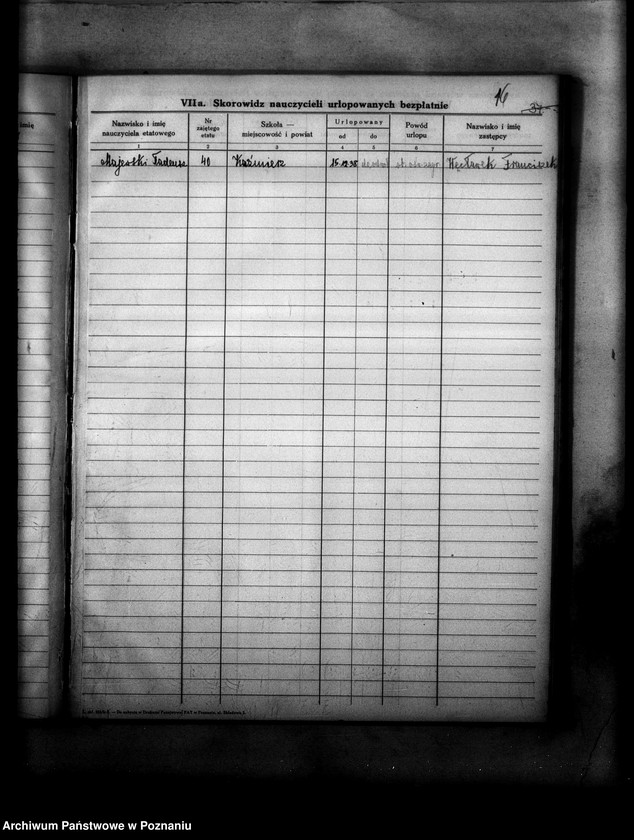 VIIa. Skorowidz nauczycieli urlopowanych bezpłatnie
16
37
imię
Nazwisko i imię nauczyciela etatowego
Nr zajętego etatu
Szkoła — miejscowość i powiat
Urlopowany
od
do
Powód urlopu
Nazwisko i imię zastępcy
1 2 3 4 5 6 7
Majestki Tadeusz 40 Kaźmierz 15.12.38 Franciszek
Archiwum Państwowe w Poznaniu